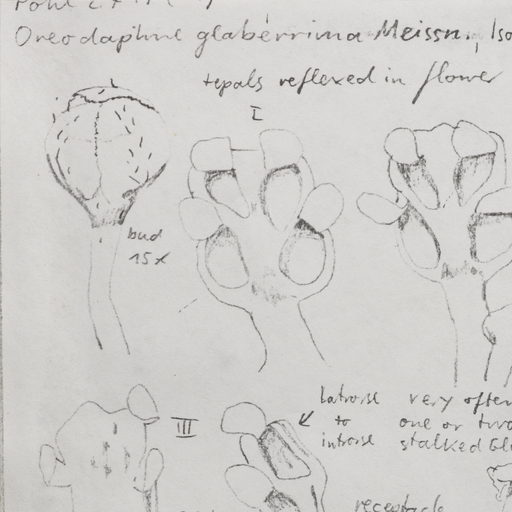 Oreodaphne glaberrima Meissn., Iso
tepals reflexed in flower
I
bud
15x
III
latrorse
to
introrse
very often
one or two
stalked
receptacle